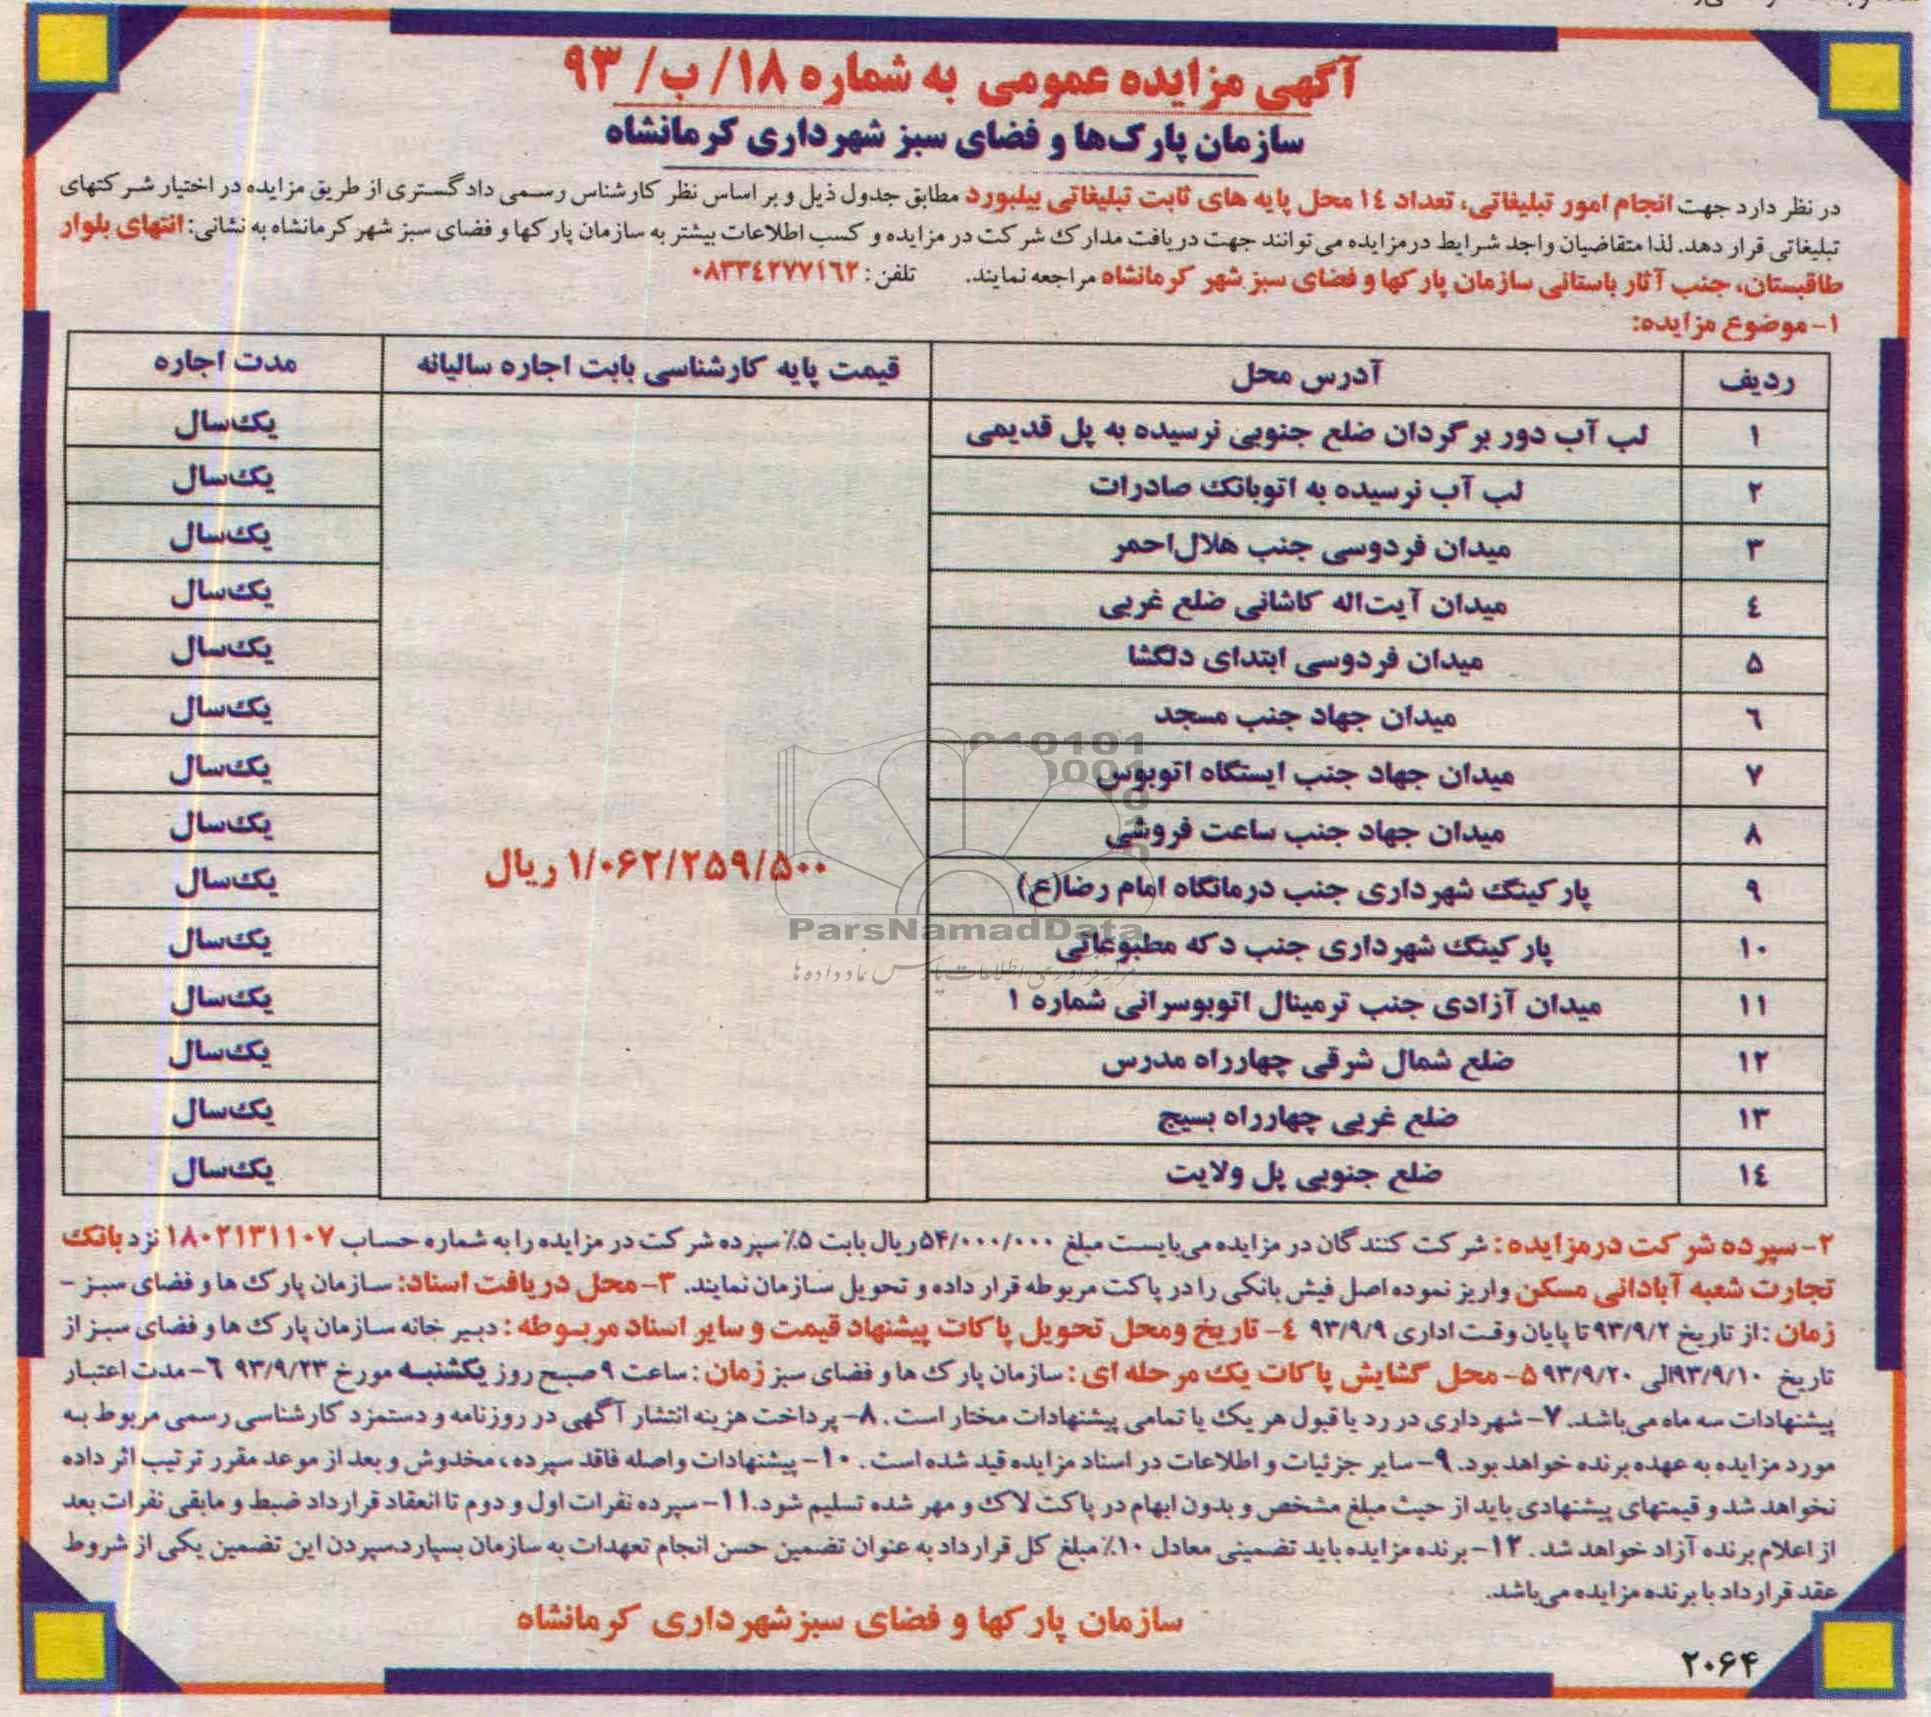 آگهی مزایده عمومی به شماره ۱۸/ ب/ ۹۳
سازمان پارک‌ها و فضای سبز شهرداری کرمانشاه
در نظر دارد جهت انجام امور تبلیغاتی، تعداد ١٤ محل پایه های ثابت تبلیغاتی بیلبورد مطابق جدول ذیل و بر اساس نظر کارشناس رسمی دادگستری از طریق مزایده در اختیار شرکتهای
تبلیغاتی قرار دهد. لذا متقاضیان واجد شرایط درمزایده می‌توانند جهت دریافت مدارک شرکت در مزایده و کسب اطلاعات بیشتر به سازمان پارکها و فضای سبز شهر کرمانشاه به نشانی: انتهای بلوار
طاقبستان، جنب آثار باستانی سازمان پارکها و فضای سبز شهر کرمانشاه مراجعه نمایند. تلفن: ٠٨٣٣٤٢٧٧١٦٢
۱- موضوع مزایده:
ردیف آدرس محل قیمت پایه کارشناسی بابت اجاره سالیانه مدت اجاره
۱ لب آب دور برگردان ضلع جنوبی نرسیده به پل قدیمی یک‌سال
۲ لب آب نرسیده به اتوبانک صادرات یک‌سال
۳ میدان فردوسی جنب هلال‌احمر یک‌سال
٤ میدان آیت‌اله کاشانی ضلع غربی یک‌سال
۵ میدان فردوسی ابتدای دلگشا یک‌سال
٦ میدان جهاد جنب مسجد یک‌سال
۷ میدان جهاد جنب ایستگاه اتوبوس یک‌سال
۸ میدان جهاد جنب ساعت فروشی یک‌سال
۱/۰۶۲/۲۵۹/۵۰۰ ریال
۹ پارکینگ شهرداری جنب درمانگاه امام رضا(ع) یک‌سال
۱۰ پارکینگ شهرداری جنب دکه مطبوعاتی یک‌سال
۱۱ میدان آزادی جنب ترمینال اتوبوسرانی شماره ۱ یک‌سال
۱۲ ضلع شمال شرقی چهارراه مدرس یک‌سال
۱۳ ضلع غربی چهارراه بسیج یک‌سال
١٤ ضلع جنوبی پل ولایت یک‌سال
ParsNamadData
مرکز فرآوری اطلاعات پارس نماد داده ها
۲- سپرده شرکت درمزایده: شرکت کنندگان در مزایده می‌بایست مبلغ ۵۴/۰۰۰/۰۰۰ریال بابت ۵٪ سپرده شرکت در مزایده را به شماره حساب ۱۸۰۲۱۳۱۱۰۷ نزد بانک
تجارت شعبه آبادانی مسکن واریز نموده اصل فیش بانکی را در پاکت مربوطه قرار داده و تحویل سازمان نمایند. ۳- محل دریافت اسناد: سازمان پارک ها و فضای سبز -
زمان: از تاریخ ۹۳/۹/۲ تا پایان وقت اداری ۹۳/۹/۹ ٤- تاریخ ومحل تحویل پاکات پیشنهاد قیمت و سایر اسناد مربوطه: دبیر خانه سازمان پارک ها و فضای سبز از
تاریخ ۹۳/۹/۱۰الی ۹۳/۹/۲۰ ۵- محل گشایش پاکات یک مرحله ای: سازمان پارک ها و فضای سبز زمان: ساعت ۹ صبح روز یکشنبه مورخ ۹۳/۹/۲۳ ٦- مدت اعتبار
پیشنهادات سه ماه می‌باشد. ۷- شهرداری در رد یا قبول هر یک یا تمامی پیشنهادات مختار است. ۸- پرداخت هزینه انتشار آگهی در روزنامه و دستمزد کارشناسی رسمی مربوط به
مورد مزایده به عهده برنده خواهد بود. ۹- سایر جزئیات و اطلاعات در اسناد مزایده قید شده است. ۱۰- پیشنهادات واصله فاقد سپرده، مخدوش و بعد از موعد مقرر ترتیب اثر داده
نخواهد شد و قیمتهای پیشنهادی باید از حیث مبلغ مشخص و بدون ابهام در پاکت لاک و مهر شده تسلیم شود. ۱۱- سپرده نفرات اول و دوم تا انعقاد قرارداد ضبط و مابقی نفرات بعد
از اعلام برنده آزاد خواهد شد. ۱۲- برنده مزایده باید تضمینی معادل ۱۰٪ مبلغ کل قرارداد به عنوان تضمین حسن انجام تعهدات به سازمان بسپارد.سپردن این تضمین یکی از شروط
عقد قرارداد با برنده مزایده می‌باشد.
سازمان پارکها و فضای سبز شهرداری کرمانشاه
۲۰۶۴